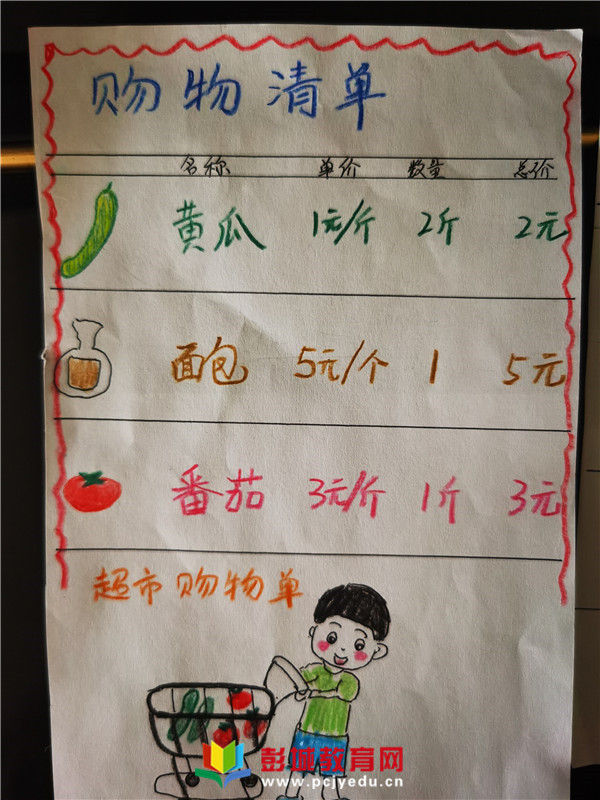 购物清单
名称 单价 数量 总价
黄瓜 1元/斤 2斤 2元
面包 5元/个 1 5元
番茄 3元/斤 1斤 3元
超市购物单
彭城教育网
www.pcjyedu.cn